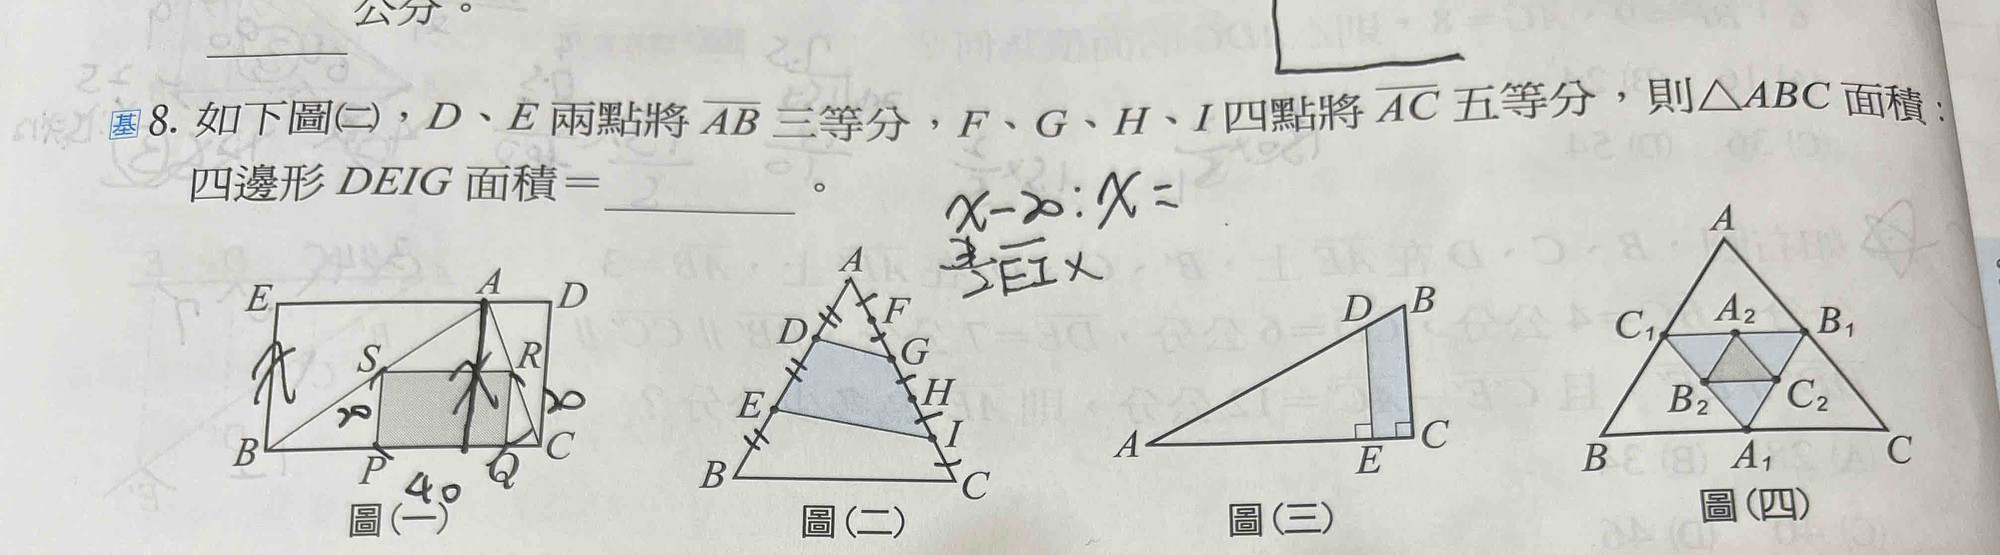 公分。
基 8. 如下圖(二)，D、E 兩點將 AB 三等分，F、G、H、I 四點將 AC 五等分，則△ABC 面積：
四邊形 DEIG 面積＝＿＿＿＿。
x-20:x=
EI x
E A D
S R
20 20
B P Q C
40
圖(一)
A
D F
G
E H
I
B C
圖(二)
D B
A E C
圖(三)
A
C₁ A₂ B₁
B₂ C₂
B A₁ C
圖(四)